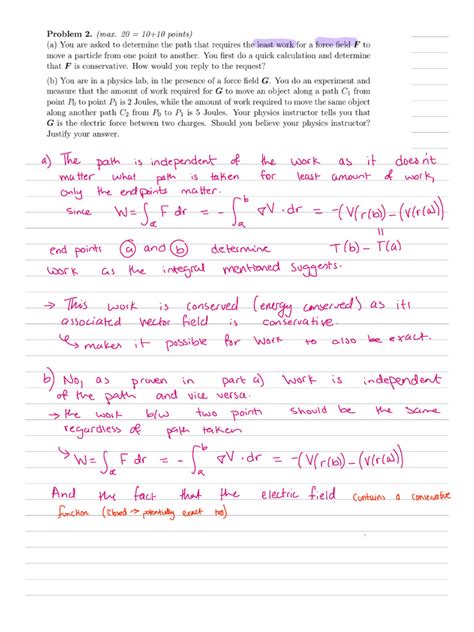 Problem 2. (max. 20 = 10+10 points)
(a) You are asked to determine the path that requires the least work for a force field F to
move a particle from one point to another. You first do a quick calculation and determine
that F is conservative. How would you reply to the request?
(b) You are in a physics lab, in the presence of a force field G. You do an experiment and
measure that the amount of work required for G to move an object along a path C₁ from
point P₀ to point P₁ is 2 Joules, while the amount of work required to move the same object
along another path C₂ from P₀ to P₁ is 5 Joules. Your physics instructor tells you that
G is the electric force between two charges. Should you believe your physics instructor?
Justify your answer.
a) The path is independent of the work as it doesn't
matter what path is taken for least amount of work,
only the endpoints matter.
Since W = ∫ₐ F dr = - ∫ₐᵇ ∇V · dr = -(V(r(b)) - (V(r(a))
=
end points (a) and (b) determine T(b) - T(a)
work as the integral mentioned suggests.
→ This work is conserved (energy conserved) as its
associated vector field is conservative.
↳ makes it possible for work to also be exact.
b) No, as proven in part a) work is independent
of the path and vice versa.
→ the work b/w two points should be the same
regardless of path taken
↳ W = ∫ₐ F dr = - ∫ₐᵇ ∇V · dr = -(V(r(b)) - (V(r(a))
And the fact that the electric field contains a conservative
function (closed → potentially exact too)